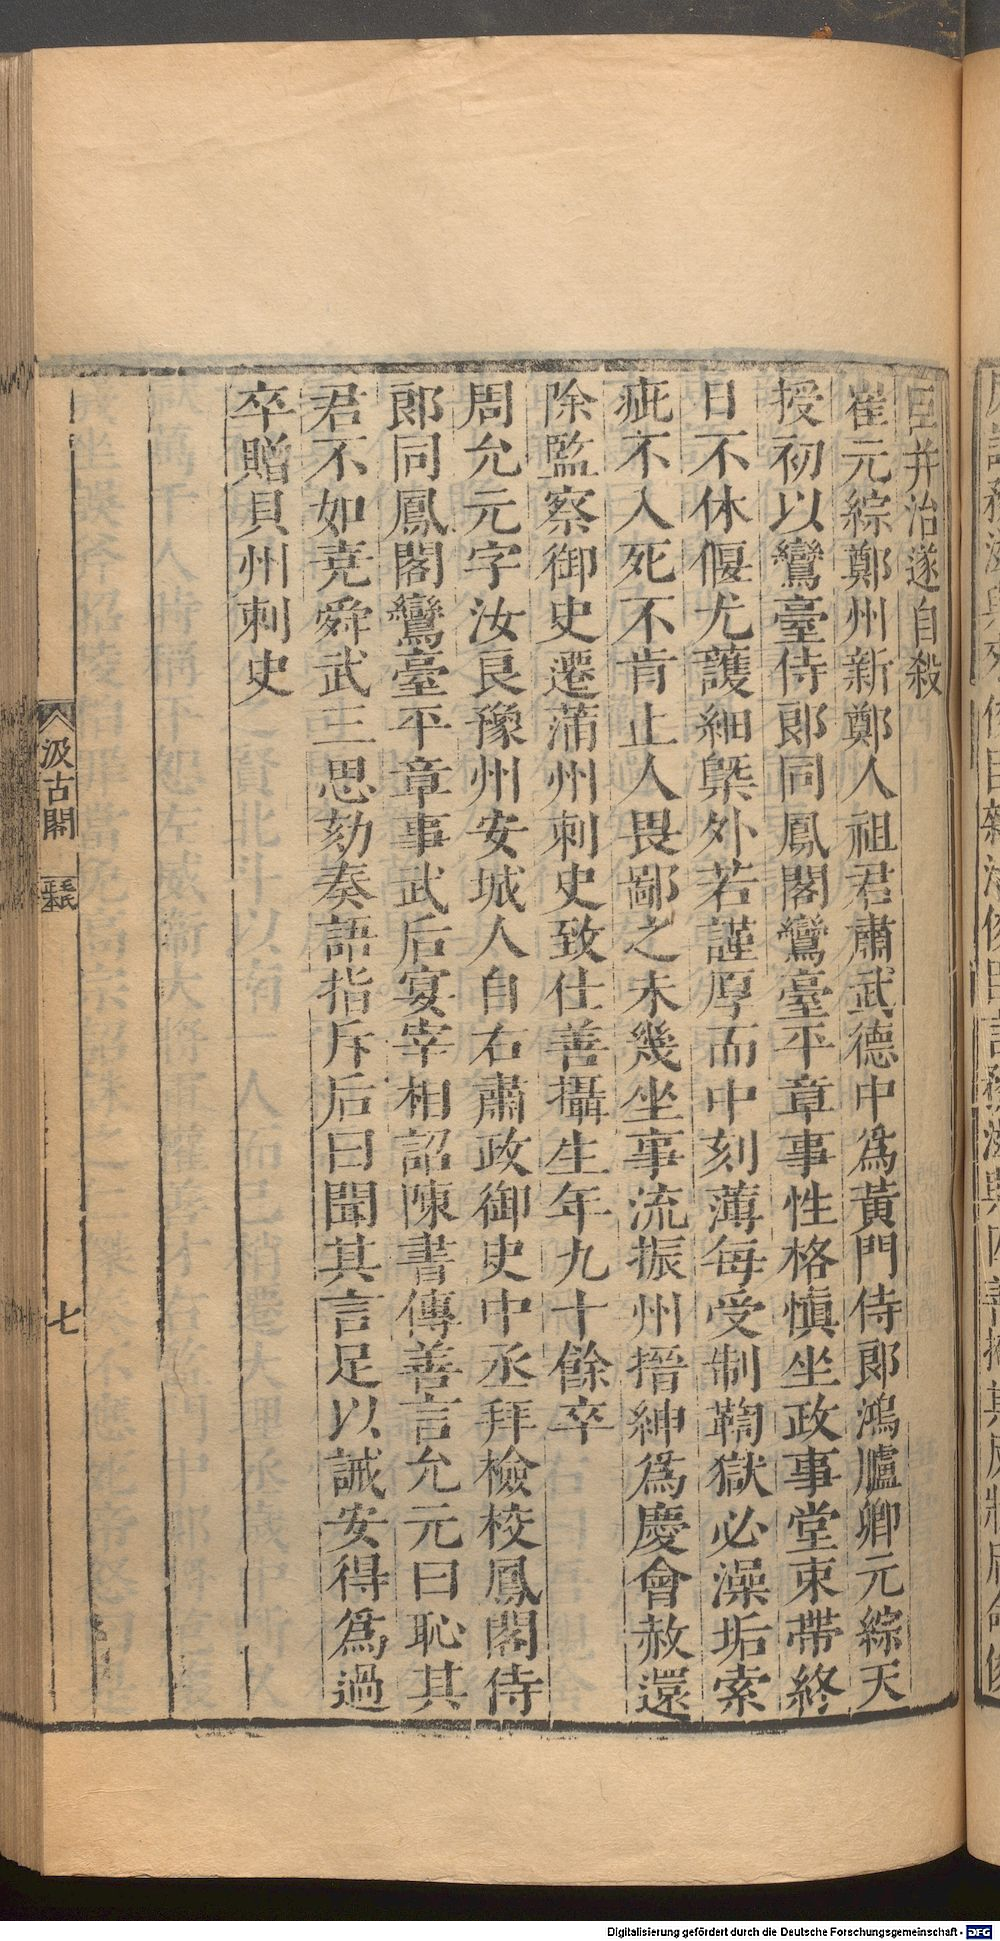 臣并治遂自殺
崔元綜鄭州新鄭人祖君肅武德中爲黃門侍郎鴻臚卿元綜天
授初以鸞臺侍郎同鳳閣鸞臺平章事性格愼坐政事堂束帶終
日不休偃尤護細槩外若謹厚而中刻薄每受制鞫獄必澡垢索
疵不入死不肯止人畏鄙之未幾坐事流振州搢紳爲慶會赦還
除監察御史遷蒲州刺史致仕善攝生年九十餘卒
周允元字汝良豫州安城人自右肅政御史中丞拜檢校鳳閣侍
郎同鳳閣鸞臺平章事武后宴宰相詔陳書傳善言允元曰恥其
君不如堯舜武三思劾奏語指斥后曰聞其言足以誡安得爲過
卒贈貝州刺史
汲古閣
毛氏
正本
七
Digitalisierung gefördert durch die Deutsche Forschungsgemeinschaft - DFG